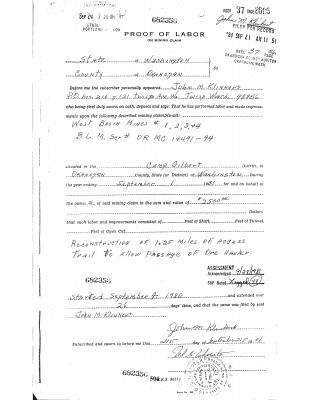 682358
BOOK 37 PAGE 2605
John M. Klinhart
FILED FOR RECORD
'81 SEP 21 AM 11 51
REEL 37
OKANOGAN COUNTY AUDITOR
OKANOGAN, WASH.
PROOF OF LABOR
ON MINING CLAIM
State of Washington
County of Okanogan
ss
Before me the subscriber personally appeared John M. Klinhart
P.O. Box 216 Twisp Wash. 98856
who being first duly sworn on oath, deposes and says: That he has performed labor and made improve-
ments upon the following described mining claim, to-wit:
West Basin Mines # 1, 2, 3, 4 4
B.L.M. Ser# OR MC. 14491-94
situated in the Camp Gilbert District, in
Okanogan County, State (or District) of Washington During
the year ending September 1 1981 for and on behalf of
the owner of said mining claim in the sum and value of $500.00
Dollars
that such labor and improvements consisted of Feet of Shaft, Feet of Tunnel,
Feet of Open Cut
Reconstruction of 1.25 Miles of Access
Trail to Allow Passage of Ore Hauler.
ASSESSMENT
Acknowledged
682358
Started September 1980 and extended over
26 days' time, and that the same was filed by said
John M. Klinhart
Subscribed and sworn to before me this 21st day of September 1981
682358